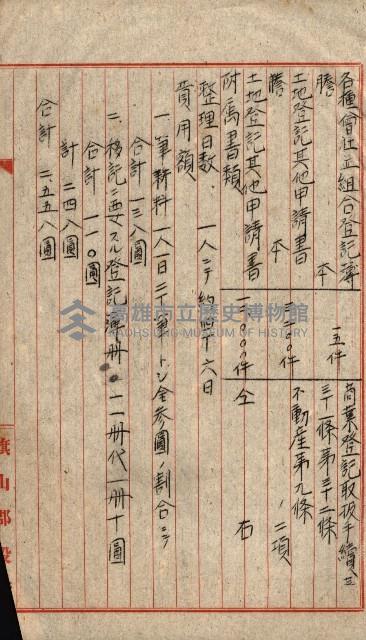 各種會社並組合登記簿
謄本
一五件
商業登記取扱手續
三十一條第三十二條
土地登記其他申請書
謄本
三〇〇件
不動産第九條ノ二項
土地登記其他申請書
附属書類
一、〇〇〇件
仝右
整理日数、一人ニテ約四十六日
費用額
一、筆耕料 一人一日二十
トシ金参圓ノ割合ニテ
合計 一三八圓
二、移記ニ要スル登記簿冊 一一冊代一冊十圓
合計 一一〇圓
計 二四八圓
合計 二、五五八圓
旗山郡役
高雄市立歷史博物館
KAOHSIUNG MUSEUM OF HISTORY